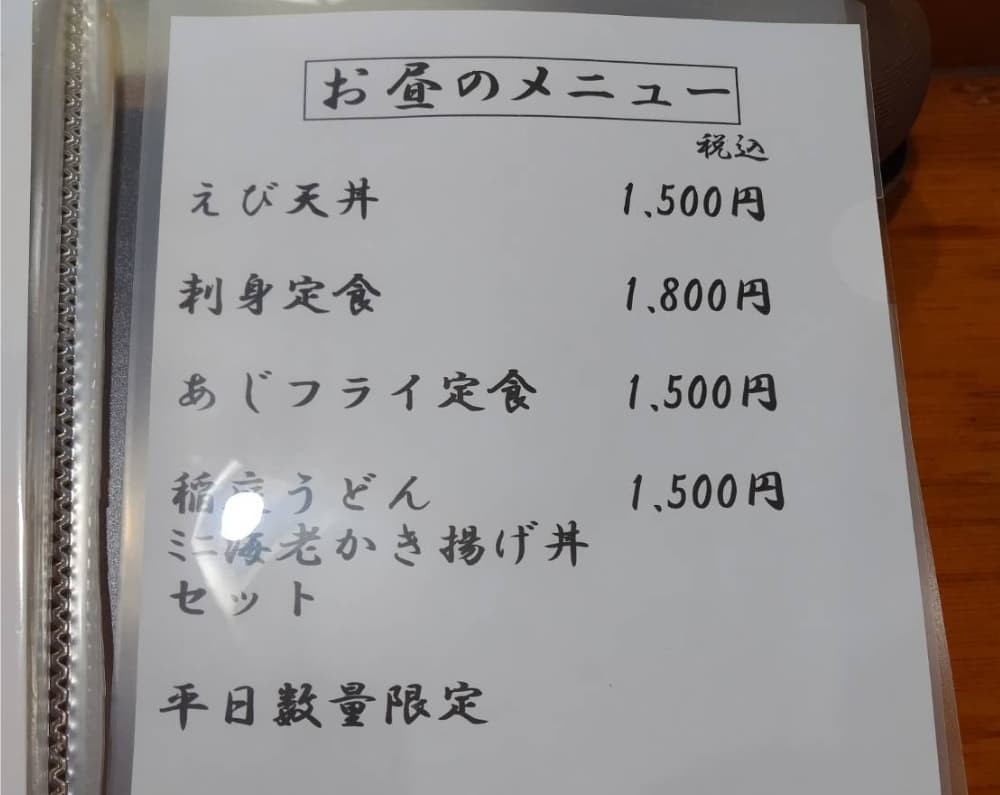 お昼のメニュー
税込
えび天丼 1,500円
刺身定食 1,800円
あじフライ定食 1,500円
稲庭うどん 1,500円
ミニ海老かき揚げ丼
セット
平日数量限定